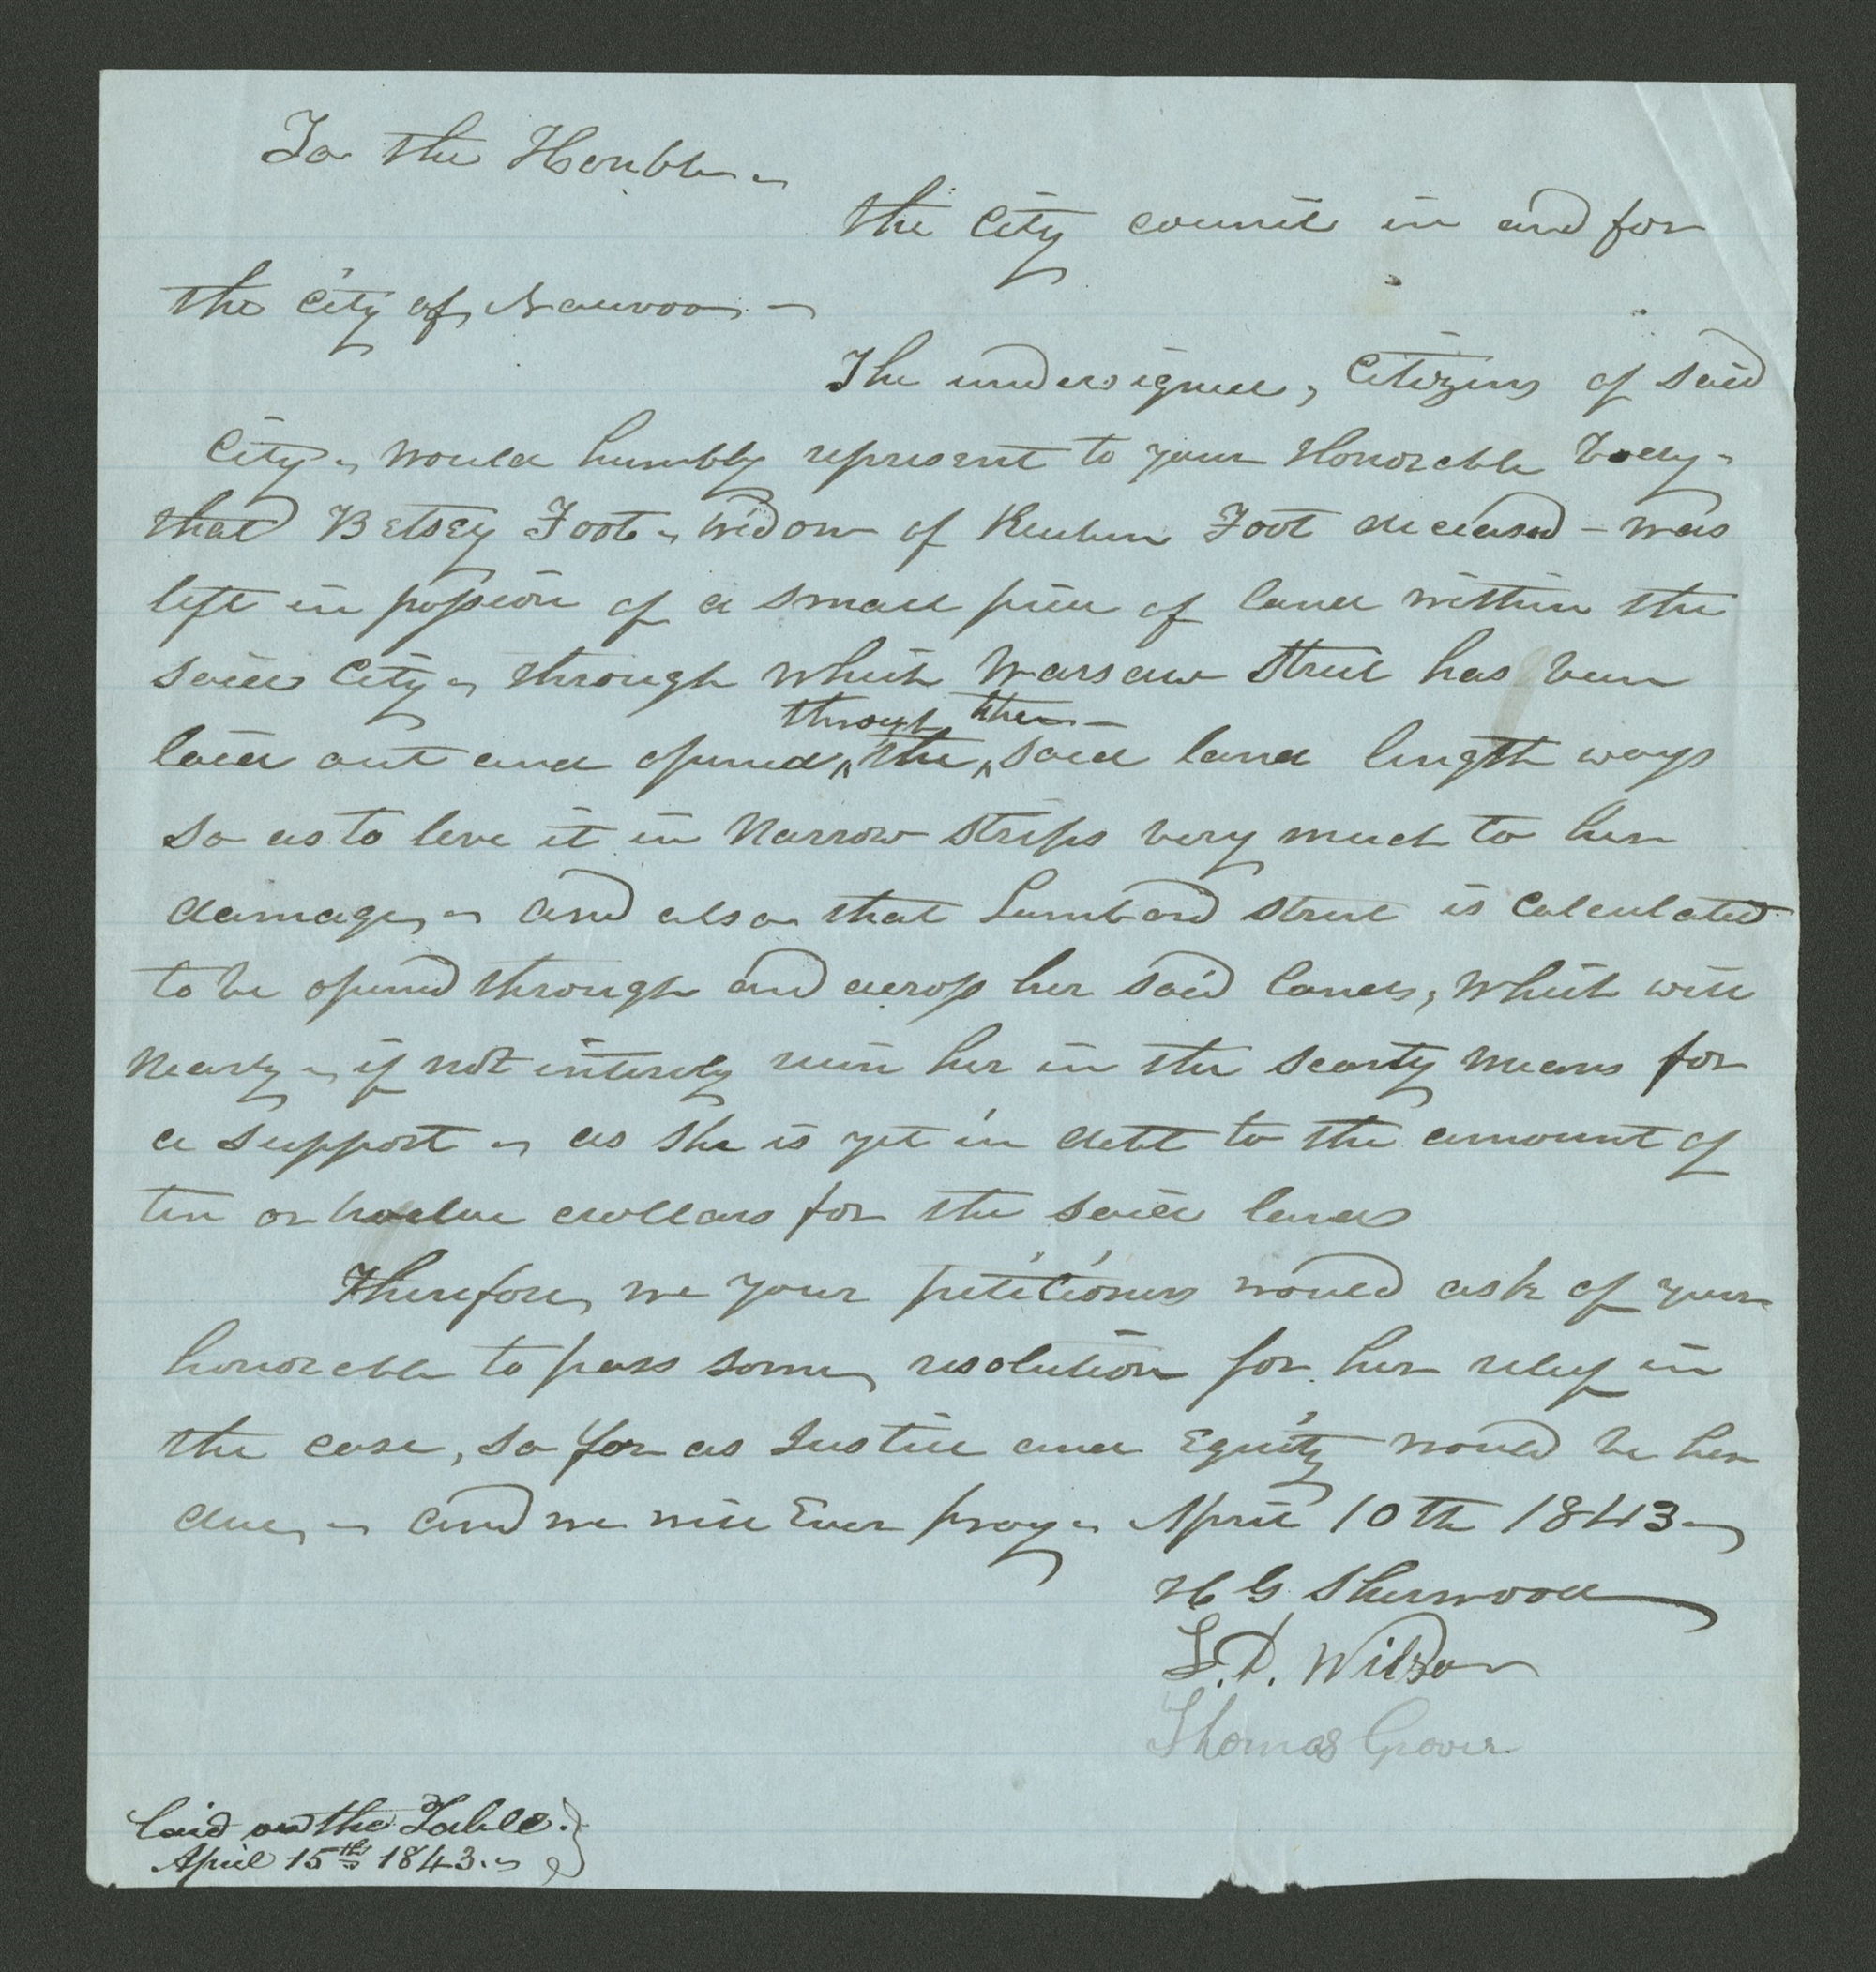 To the Honble –
the City council in and for
the City of Nauvoo –
The undersigned, Citizens of said
City – would humbly represent to your Honorable body –
that Betsey Foot – widow of Reuben Foot deceased – was
left in possion of a small piece of land within the
said City – through which Warsaw Street has been
through then –
laid out and opened ^ the ^ said land length ways
so as to leve it in Narrow strips very much to her
damage – and also that Lumbard street is calculated
to be opened through and across her said lands, which will
nearly – if not intirely ruin her in the scanty means for
a support – as she is yet in debt to the amount of
ten or twelve dollars for the said lands
Therefore, we your petitioners would ask of your
honorable to pass some resolution for her relief in
the case, so far as Justice and Equity would be her
due, – and we will Ever pray – April 10th 1843 –
H G Sherwood
L. D. Wilson
Thomas Grover
Laid on the Table.
April 15th 1843. –